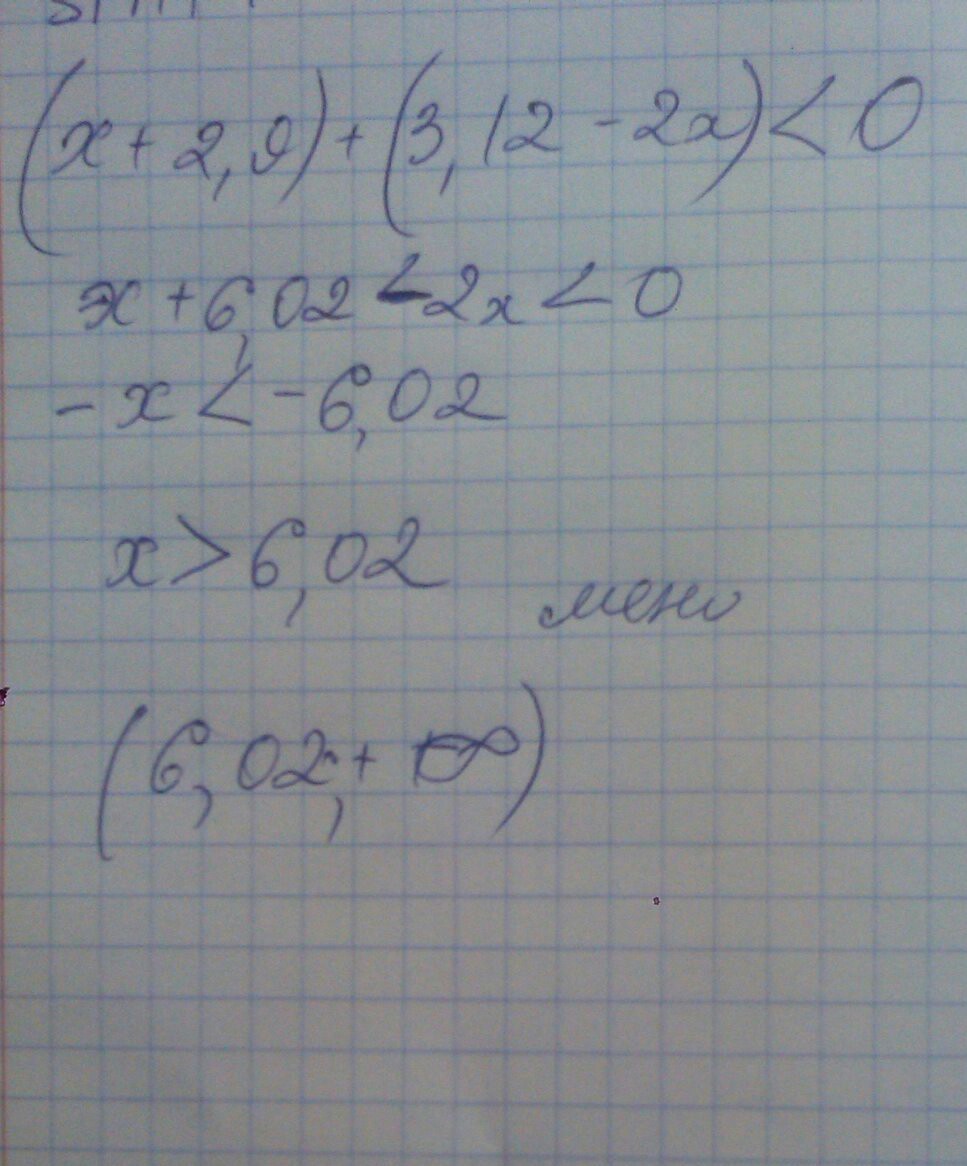 (x + 2,9) + (3,12 - 2x) < 0
x + 6,02 - 2x < 0
- x < - 6,02
x > 6,02
(6,02; + ∞)